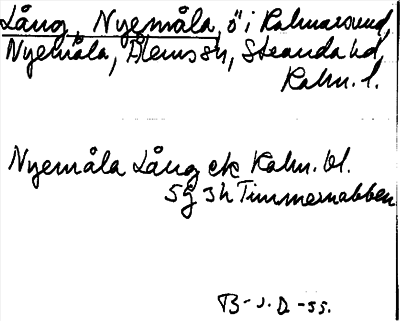 Lång, Nyemåla, ö i Kalmarsund,
Nyemåla, Ålems sn, Stranda hd,
Kalm. l.
Nyemåla Lång ek Kalm. bl.
5g sh Timmernabben
B-J.D.-55.